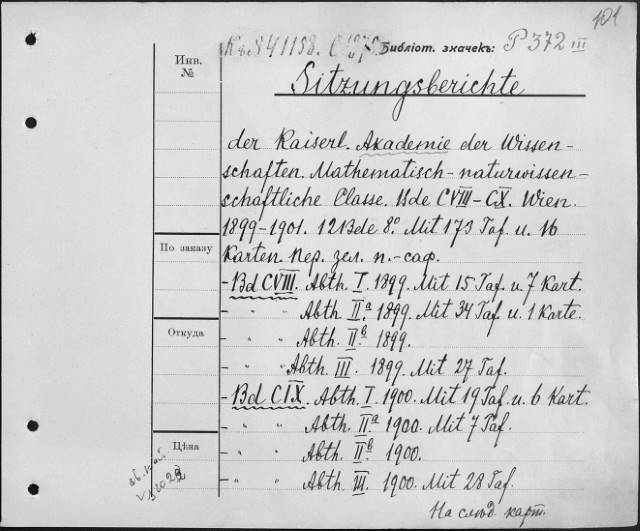 101
Библіот. значекъ: P 372 III
Инв.
№
Sitzungsberichte
der Kaiserl. Akademie der Wissen-
schaften. Mathematisch-naturwissen-
schaftliche Classe. Bde CVIII-CX. Wien.
1899-1901. 12 Bde 8º. Mit 173 Taf. u. 16
По заказу
Karten. Пер. зел. п.-саф.
- Bd CVIII. Abth. I. 1899. Mit 15 Taf. u. 7 Kart.
- " " Abth. II.a 1899. Mit 34 Taf. u. 1 Karte.
Откуда
- " " Abth. II.b 1899.
- " " Abth. III. 1899. Mit 27 Taf.
- Bd CIX. Abth. I. 1900. Mit 19 Taf. u. 6 Kart.
- " " Abth. II.a 1900. Mit 7 Taf.
Цѣна
- " " Abth. II.b 1900.
- " " Abth. III. 1900. Mit 28 Taf.
На слѣд. карт.